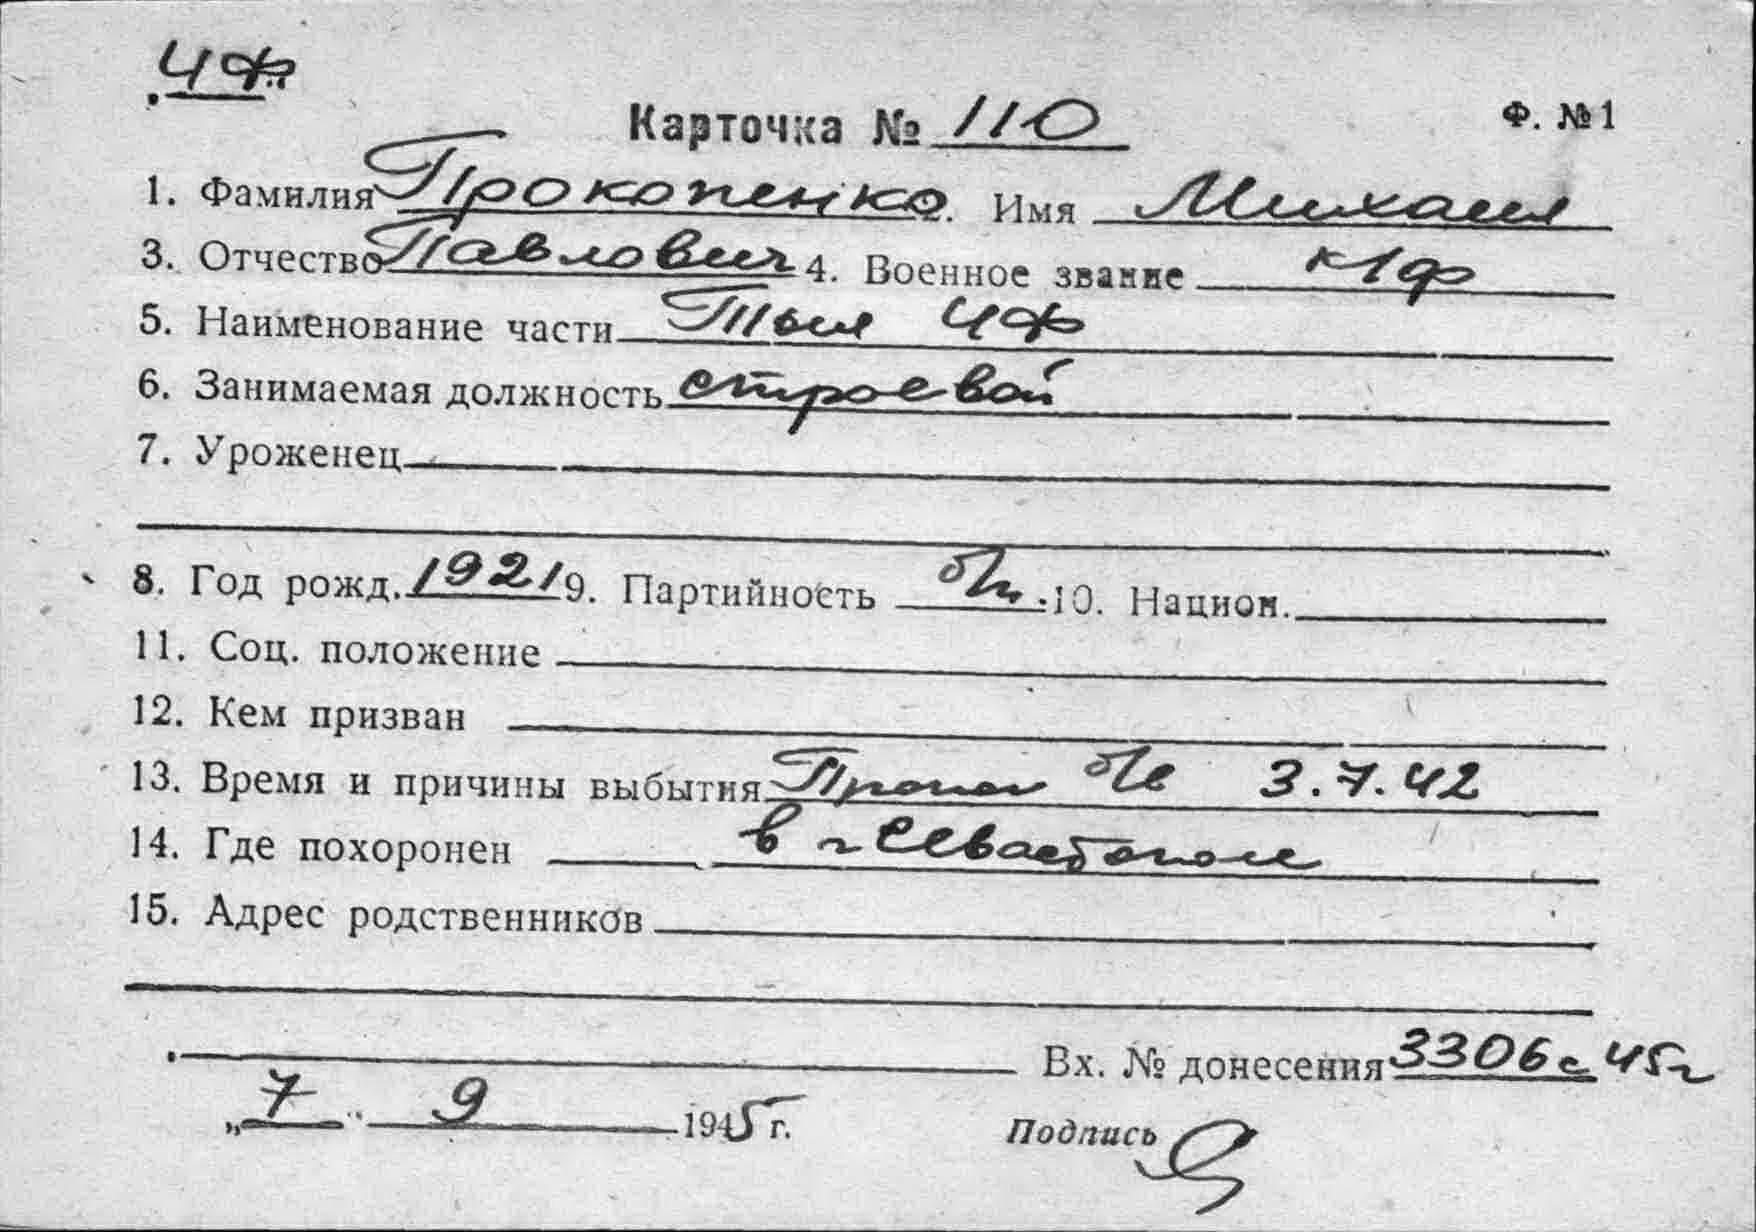 ЧФ
Карточка № 110 Ф. №1
1. Фамилия Прокопенко. Имя Михаил
3. Отчество Павлович 4. Военное звание к1ф
5. Наименование части Тыл ЧФ
6. Занимаемая должность строевой
7. Уроженец
8. Год рожд. 1921 9. Партийность б/п. 10. Национ.
11. Соц. положение
12. Кем призван
13. Время и причины выбытия Пропал б/в 3.7.42
14. Где похоронен в г Севастополе
15. Адрес родственников
Вх. № донесения 3306с 45г
„7" 9 1945 г. Подпись